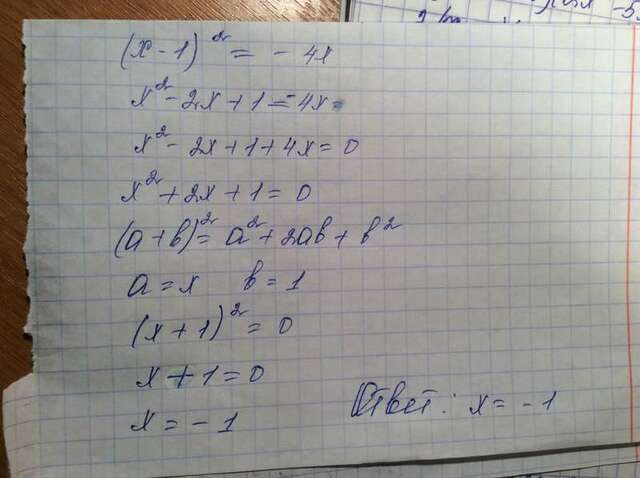 (x - 1)² = - 4x
x² - 2x + 1 = -4x
x² - 2x + 1 + 4x = 0
x² + 2x + 1 = 0
(a + b)² = a² + 2ab + b²
a = x b = 1
(x + 1)² = 0
x + 1 = 0
x = - 1
Ответ: x = - 1